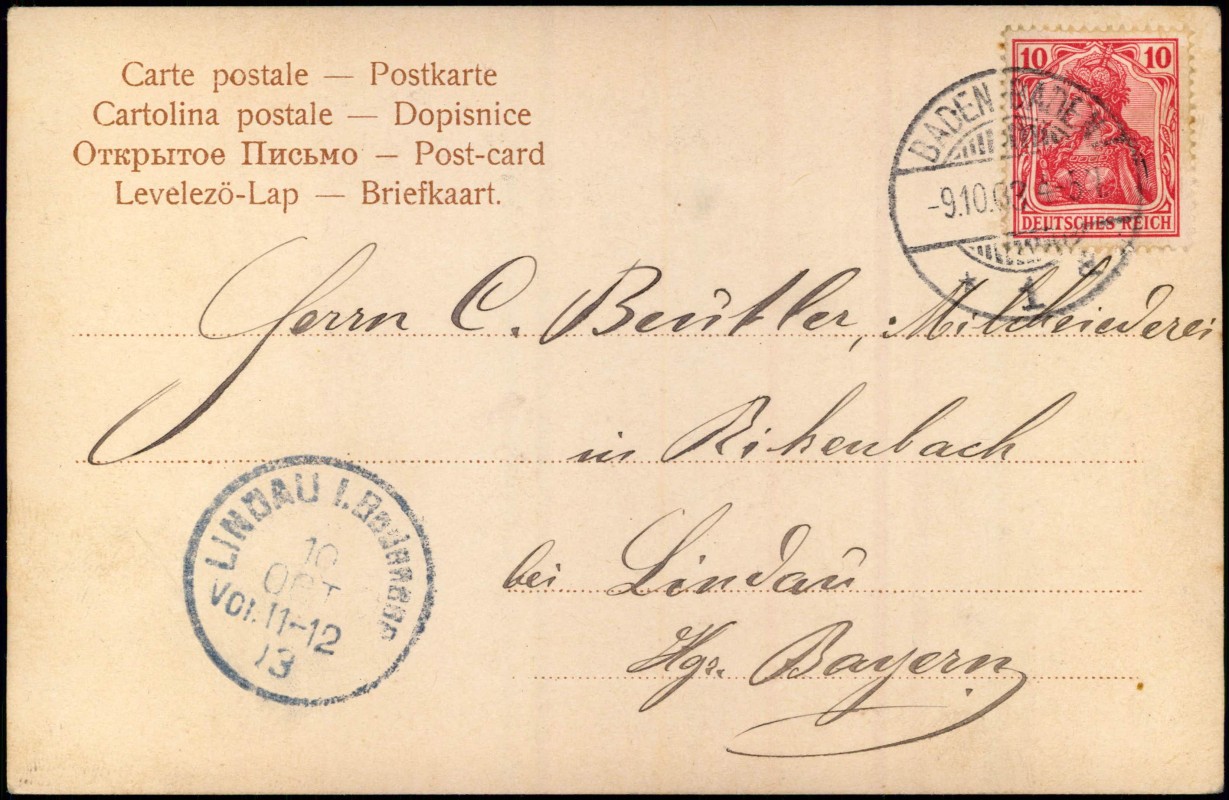 Carte postale — Postkarte
Cartolina postale — Dopisnice
Открытое Письмо — Post-card
Levelező-Lap — Briefkaart.
10 10
DEUTSCHES REICH
BADEN-BADEN
-9.10.03
* 1
Herrn C. Beutler,
in Rikenbach
bei Lindau
Bayern
LINDAU i. Bodensee
10
OKT
VOR. 11-12
03